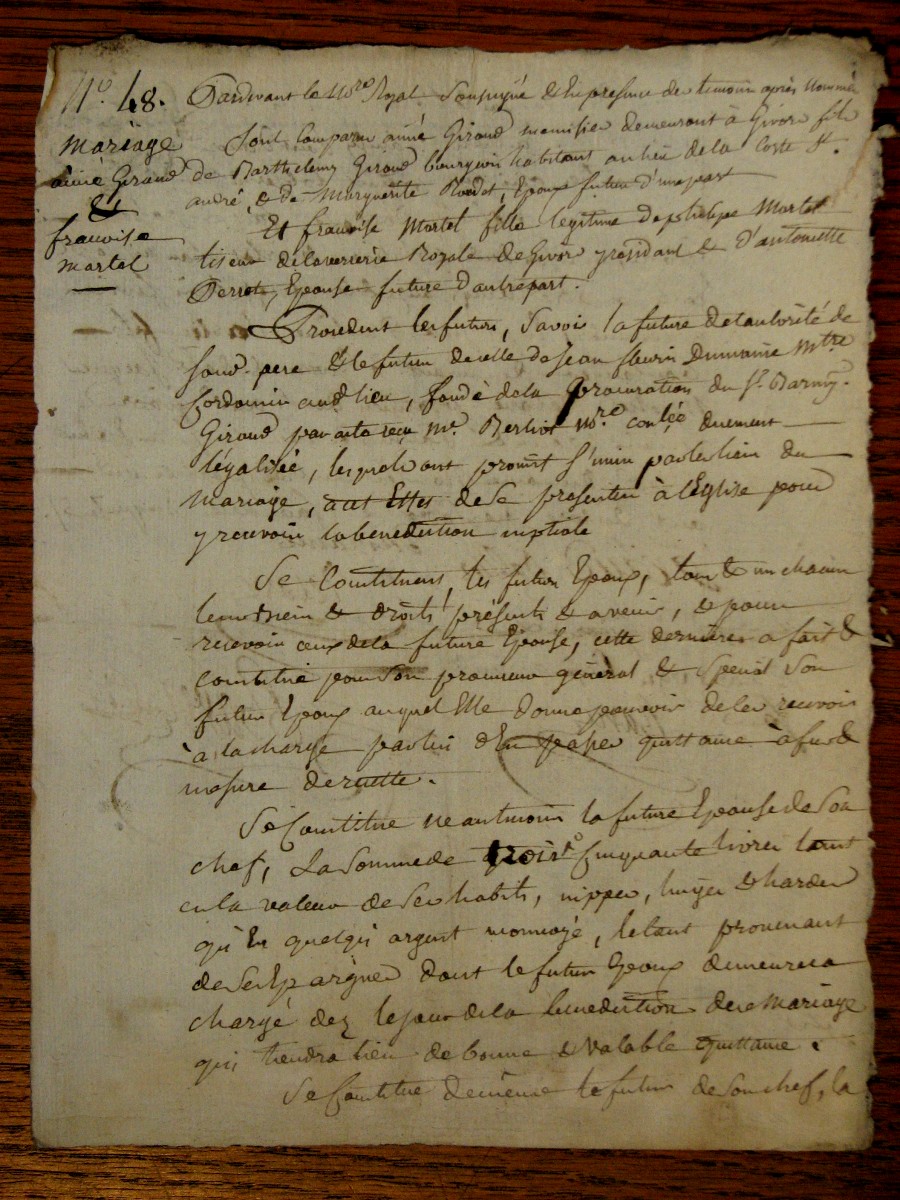 N.º 48.
Mariage
aimé Giraud
&
francoise
martel
Pardevant le No.re Royal Soussigné & En presence des temoins après Nommés
Sont Comparus aimé Giraud menuisier demeurant à Givors fils
de Barthelemy Giraud bourgeois habitant au lieu de la Coste St.
andré, & de Marguerite Epoux futur d'une part
Et francoise Martel fille legitime de philippe Martel
tiseur de la verrerie Royale de Givors y residant & d'antoinette
Perret, Epouse future d'autre part.
Procedant les futurs, Savoir la future de l'autorité de
Sond. pere & le futur de celle de Jean fleuris Dumaine M.tre
Cordonnier aud. lieu, fondé de la procuration du Sr. Barmy.
Giraud par acte recu Me. Berliot No.re controlée duement
légalisée, lesquels ont promis S'unir par les liens du
Mariage, a cet Effet de Se presenter à l'Eglise pour
y recevoir la benediction nuptiale
Se Constituent, les futurs Epoux, tous & un chacun
leurs biens & droits présents & a venir, & pour
recevoir ceux de la future Epouse, cette derniere a fait &
constitué pour Son procureur général & Spécial Son
futur Epoux auquel Elle donne pouvoir de les recevoir
à la charge par lui d'En passer quittance à fur &
mesure de recette.
Se Constitue neantmoins la future Epouse de Son
chef, La Somme de Cinquante livres tant
en la valeur de Ses habits, nippes, linges & hardes
qu'En quelqu'argent monnoyé, le tout provenant
de Ses Epargnes dont le futur Epoux demeurera
chargé dez le jour de la benediction du Mariage
qui tiendra lieu de bonne & valable quittance.
Se Constitue de même le futur de Son chef, la